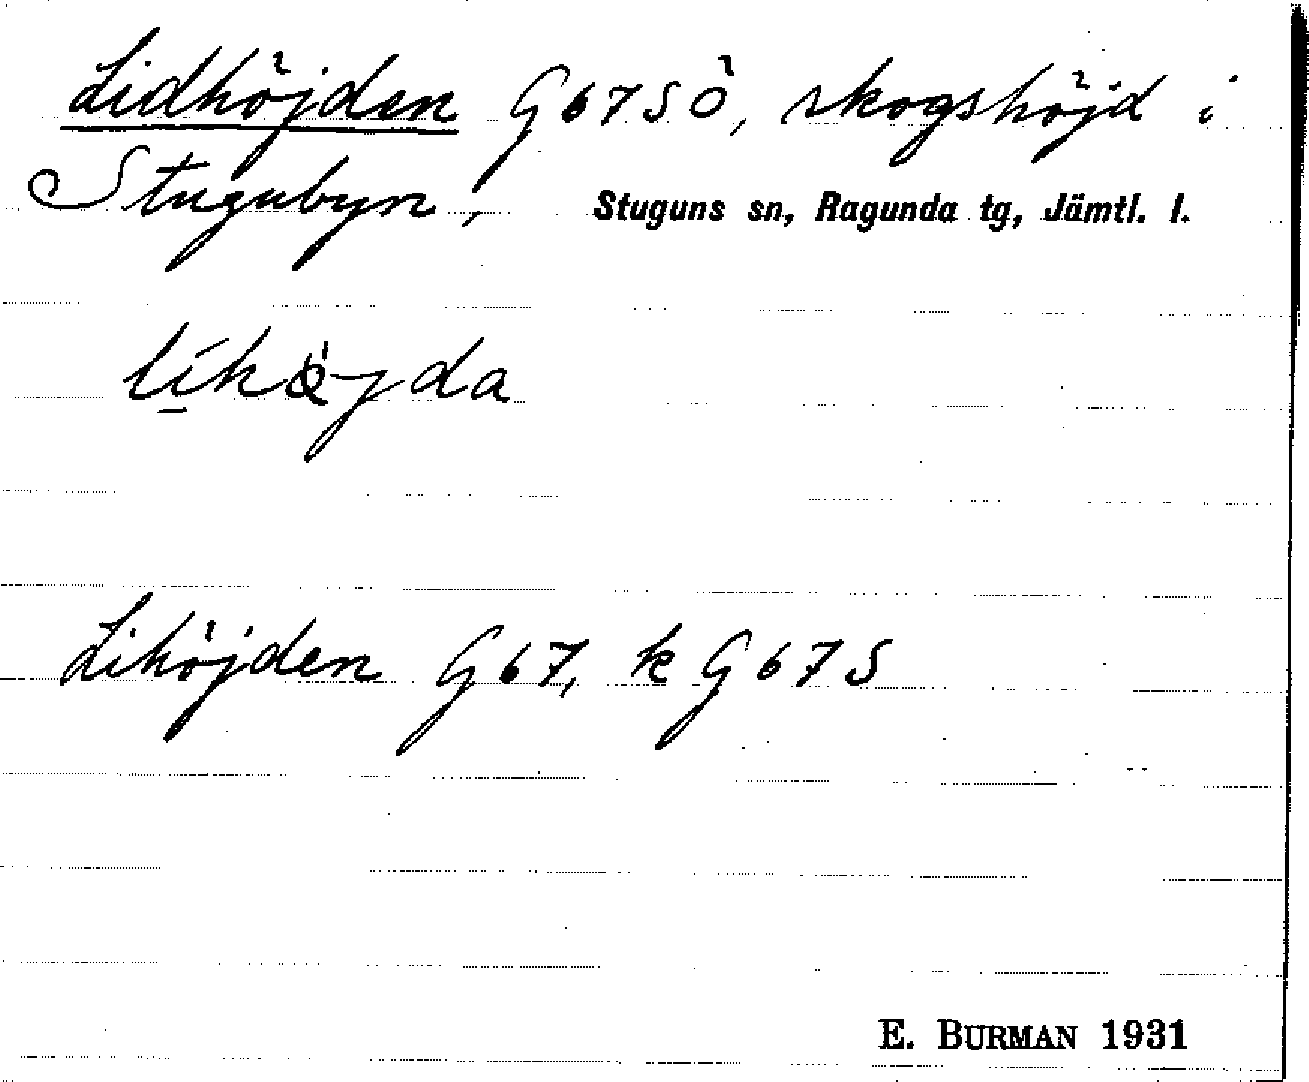 Lidhöjden G67SÖ, skogshöjd i
Stugubyn, Stuguns sn, Ragunda tg, Jämtl. l.
Lihöjden G67, k G67S
E. BURMAN 1931